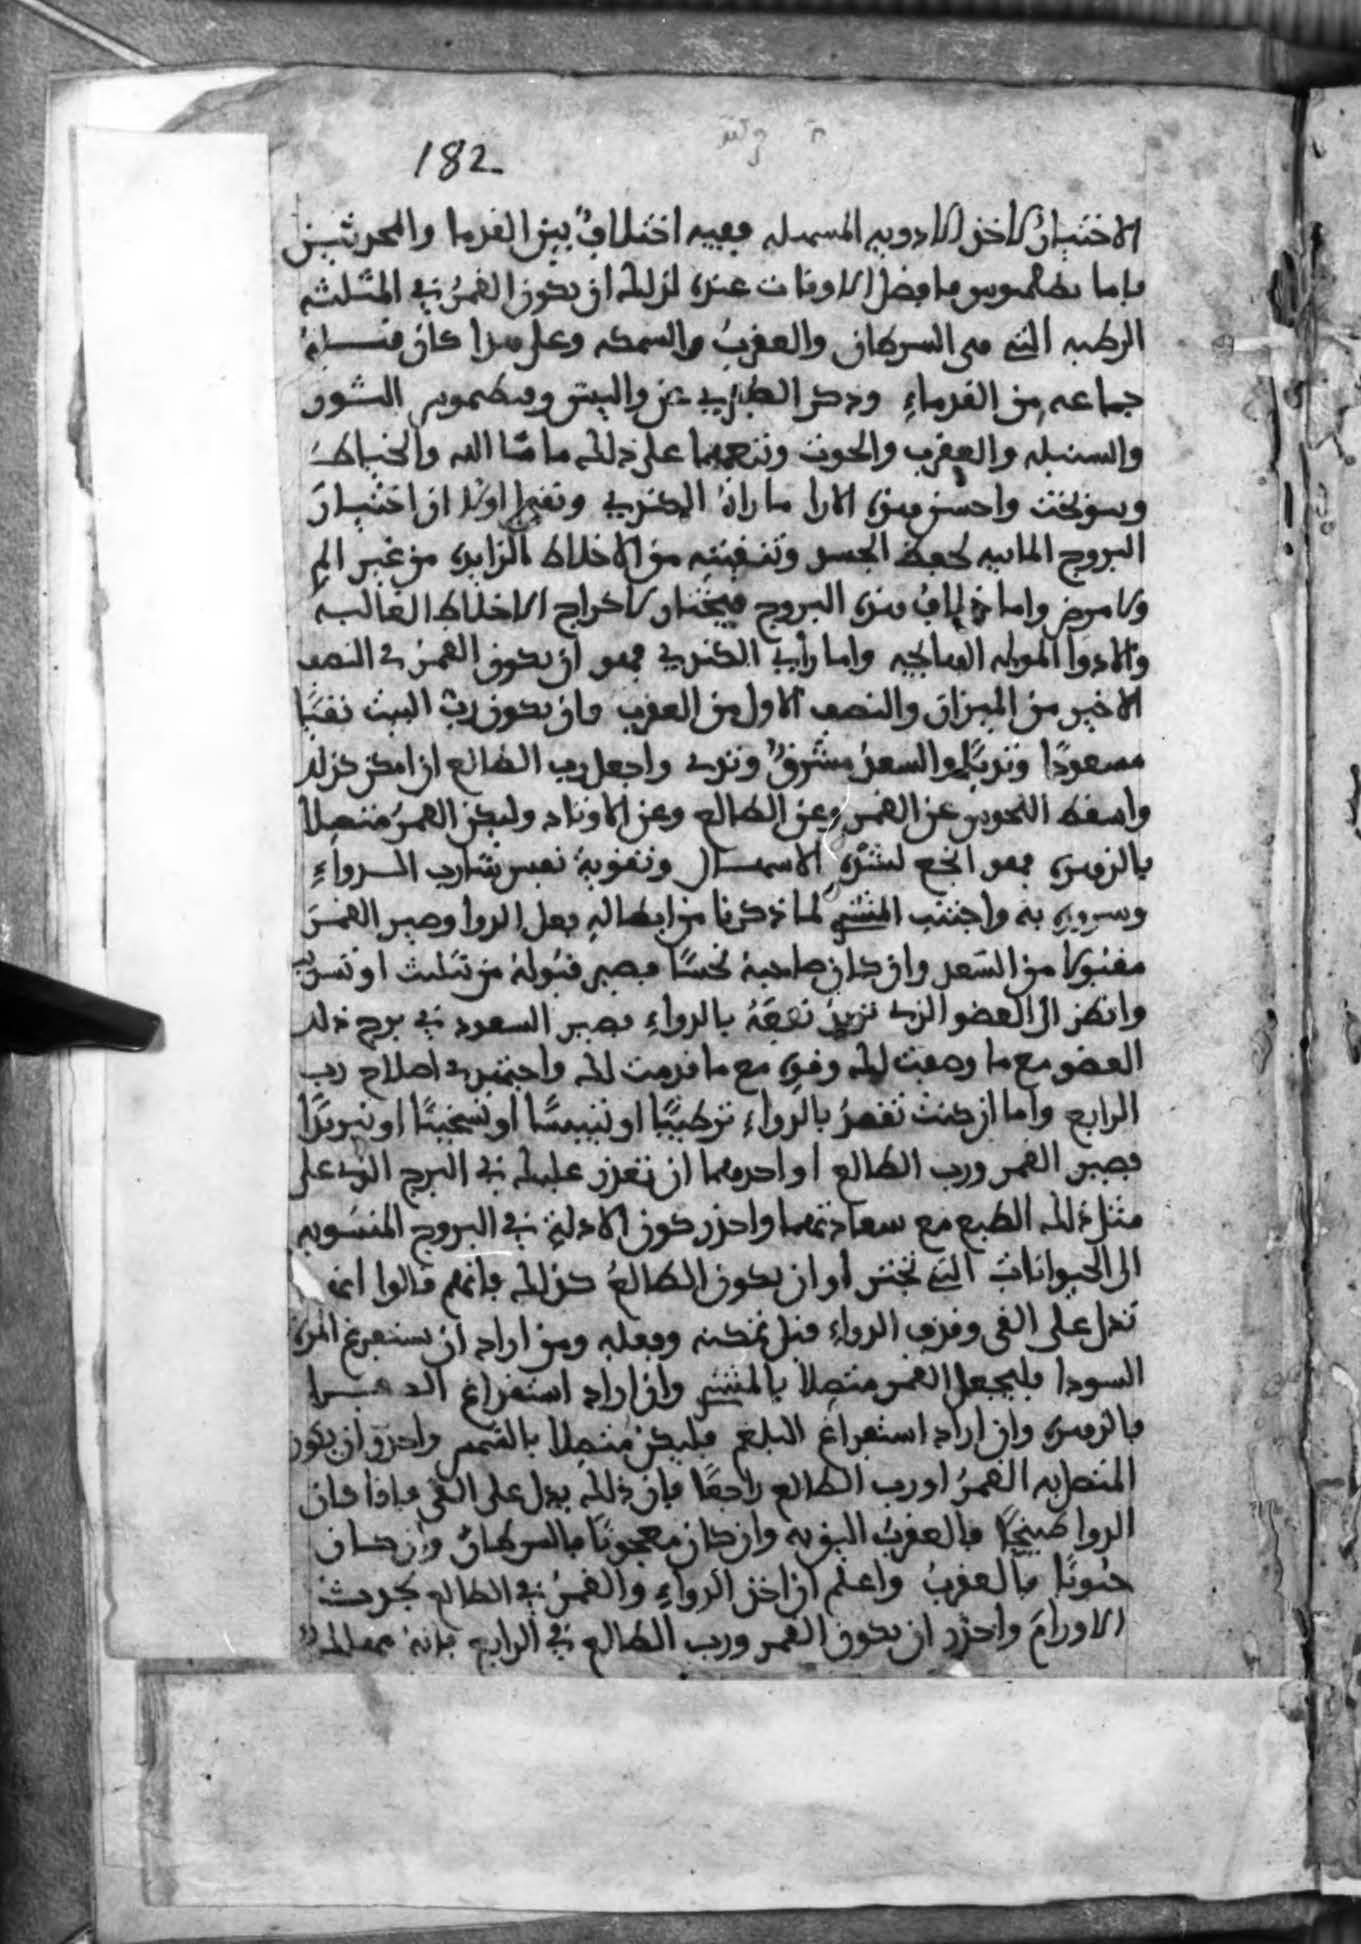 182
الاختيار لاخذ الادويه المسهله ففيه اختلافٌ بين القدما والمحدثين
فاما بطلميوس فافضل الاوقات عنده لذلك ان يكون القمرُ في المثلثه
الرطبه التي هي السرطان والعقربُ والسمكه وعلى هذا كان
جماعه من القدماءِ وذكر الطبري عن واليس وبطلميوس الثور
والسنبله والعقرب والحوت وتبعهما على ذلك ما شا الله والخياط
وسونخت واحسن هذه الارا ما راهُ الكندي وتفهم اولا ان اختيارَ
البروج المائيه لحفظ الجسد وتنقيته من الاخلاط الزايده من غير الم
ولا مرض واما خلافُ هذه البروج فيختار لاخراج الاخلاط الغالبة
والادوا المهلكه واما رأي الكندي فهو ان يكون القمرُ في النصف
الاخير من الميزان والنصف الاول من العقرب وان يكون ربُّ البيت نقيًّا
مسعودًا والسعدُ مشرقٌ واجعل رب الطالع ان امكن كذلك
واسقط النحوس عن القمر وعن الطالع وعن الاوتاد وليكن القمرُ متصلا
بالزهره فهو انجع لشدّه الاسهال وتقوية نفس شارب الدواءِ
وسروره به واجتنب المشتري لما ذكرنا من ابطاله فعل الدوا وصير القمرَ
مقبولا من السّعد وان كان صاحبهُ نحسًا فصير قبولهُ من تثليث او تسديس
وانظر الى العضو الذي تريدُ نفعَهُ بالدواءِ فصير السعود في برج ذلك
العضو مع ما وصفت لك وقوه مع ما قدمت لك واجتهد في اصلاح رب
الرابع واما ان كنت تقصدُ بالدواءِ ترطيبًا او تيبيسًا او تسخينًا او تبريدًا
فصير القمر ورب الطالع او احدهما ان تعذر عليك في البرج الذي على
مثل ذلك الطبع مع سعادتهما واحذر كون الادلة في البروج المنسوبه
الى الحيوانات التي تجتر او ان يكون الطالعُ كذلك فانهم قالوا انها
تدل على القي وقذف الدواءِ قبل تمكنه وفعله ومن اراد ان يستفرغ المره
السودا فليجعل القمر متصلا بالمشتري وان اراد استفراغ الصفرا
فبالزهره وان اراد استفراغ البلغم فليكن متصلا بالشمس واحذر ان يكون
المتصل به القمرُ او رب الطالع راجعًا فان ذلك يدل على القي فاذا كان
الدوا طبيخًا فالعقربُ وان كان معجونًا فالسرطانُ وان كان
حبوبًا فالعقربُ واعلم ان اخذ الدواءِ والقمرُ في الطالع يحدث
الاورامَ واحذر ان يكون القمر ورب الطالع في الرابع فانهُ مهلك